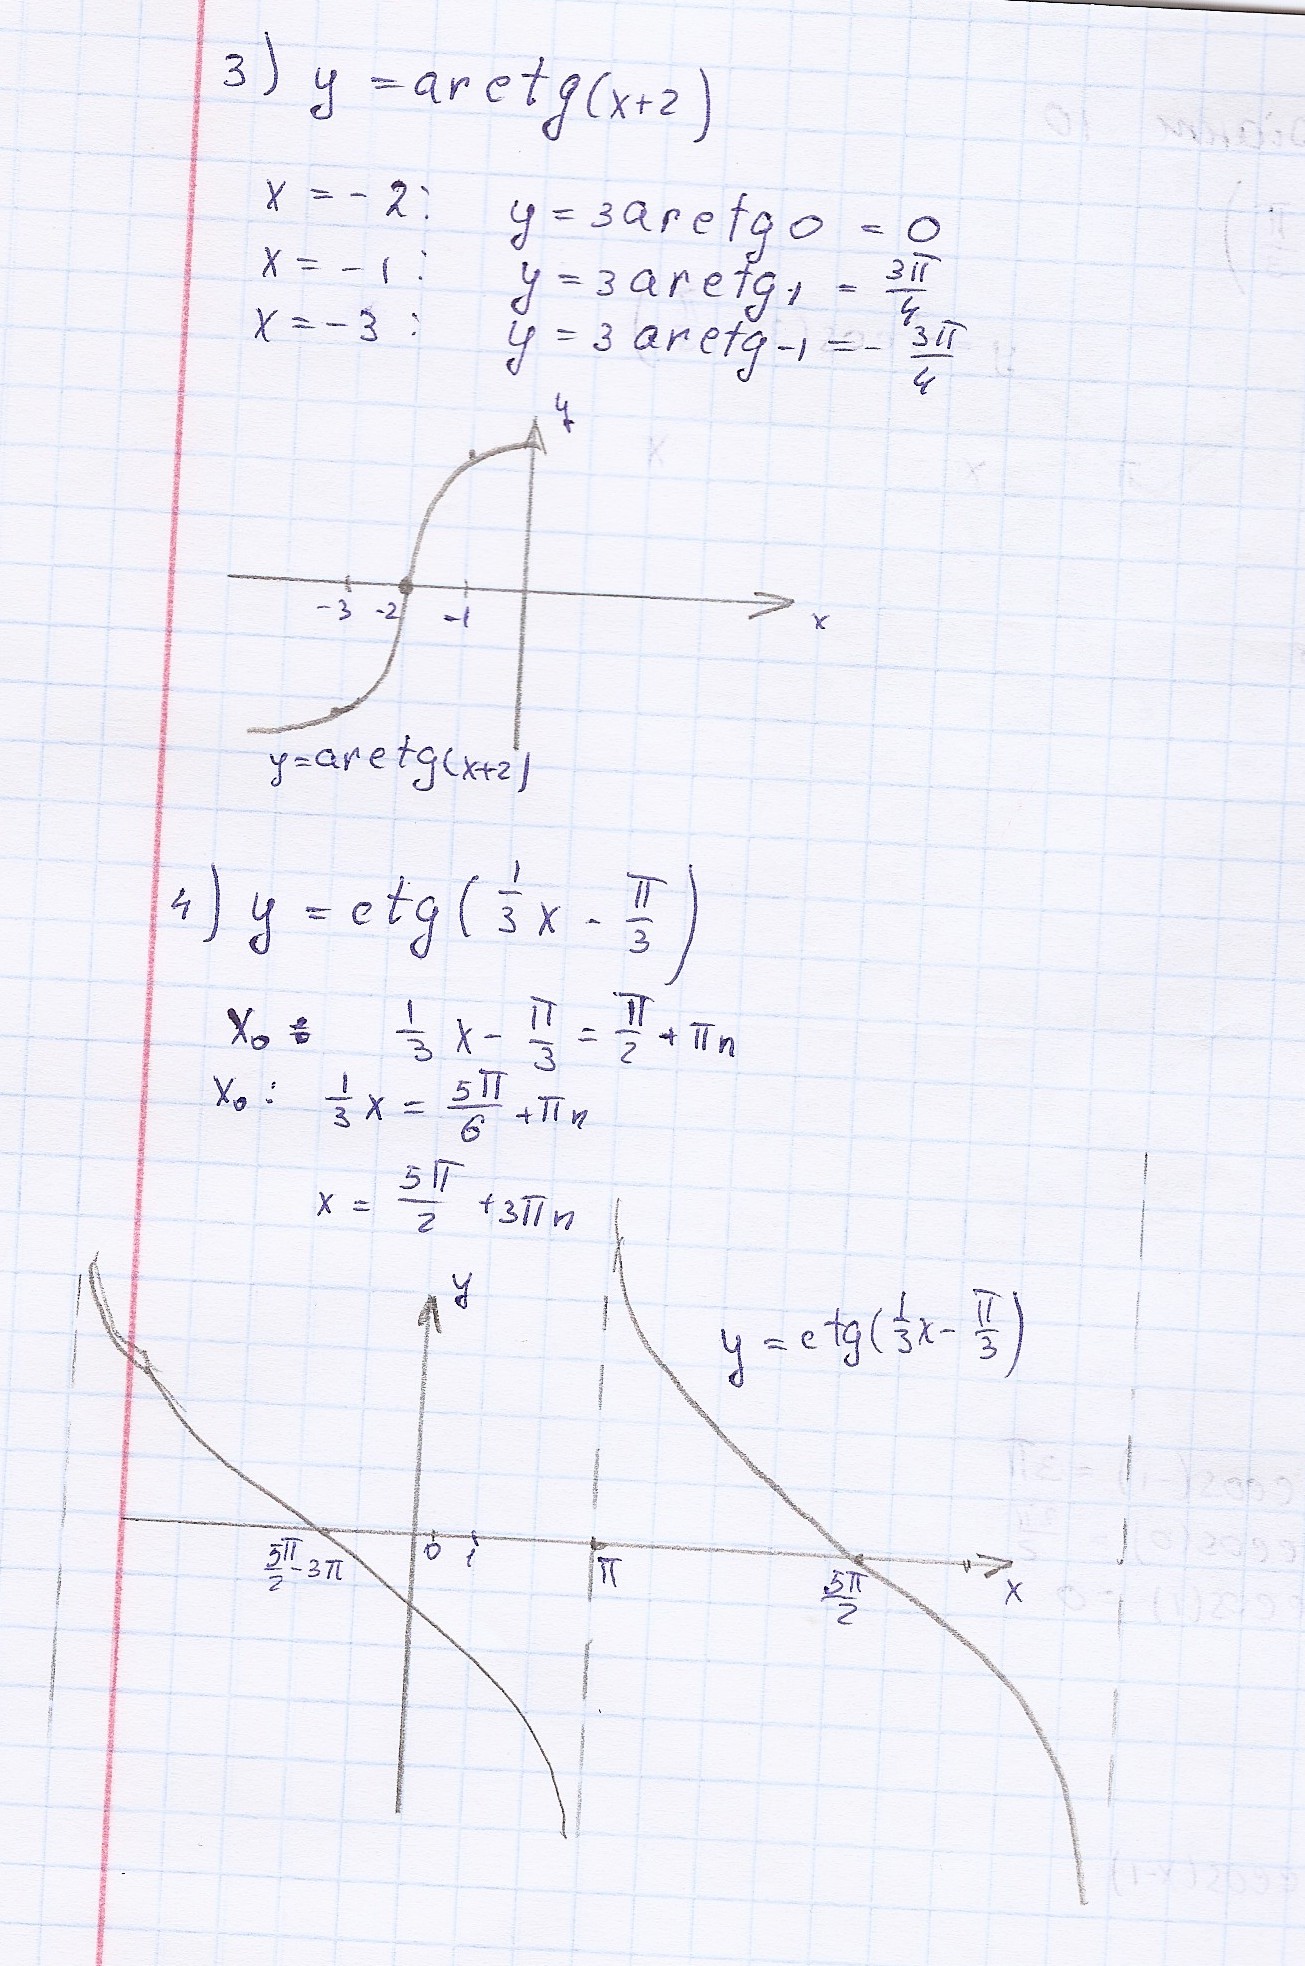 3) y = arctg(x+2)
x = -2: y = 3arctg0 = 0
x = -1: y = 3arctg1 = 3π/4
x = -3: y = 3arctg-1 = -3π/4
y
-3 -2 -1 x
y=arctg(x+2)
4) y = ctg(1/3 x - π/3)
x₀ = 1/3 x - π/3 = π/2 + πn
x₀: 1/3 x = 5π/6 + πn
x = 5π/2 + 3πn
y
y = ctg(1/3 x - π/3)
5π/2 - 3π 0 1 π 5π/2 x